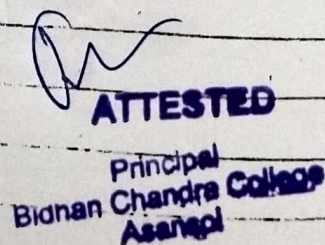 ATTESTED
Principal
Bidhan Chandra College
Asansol